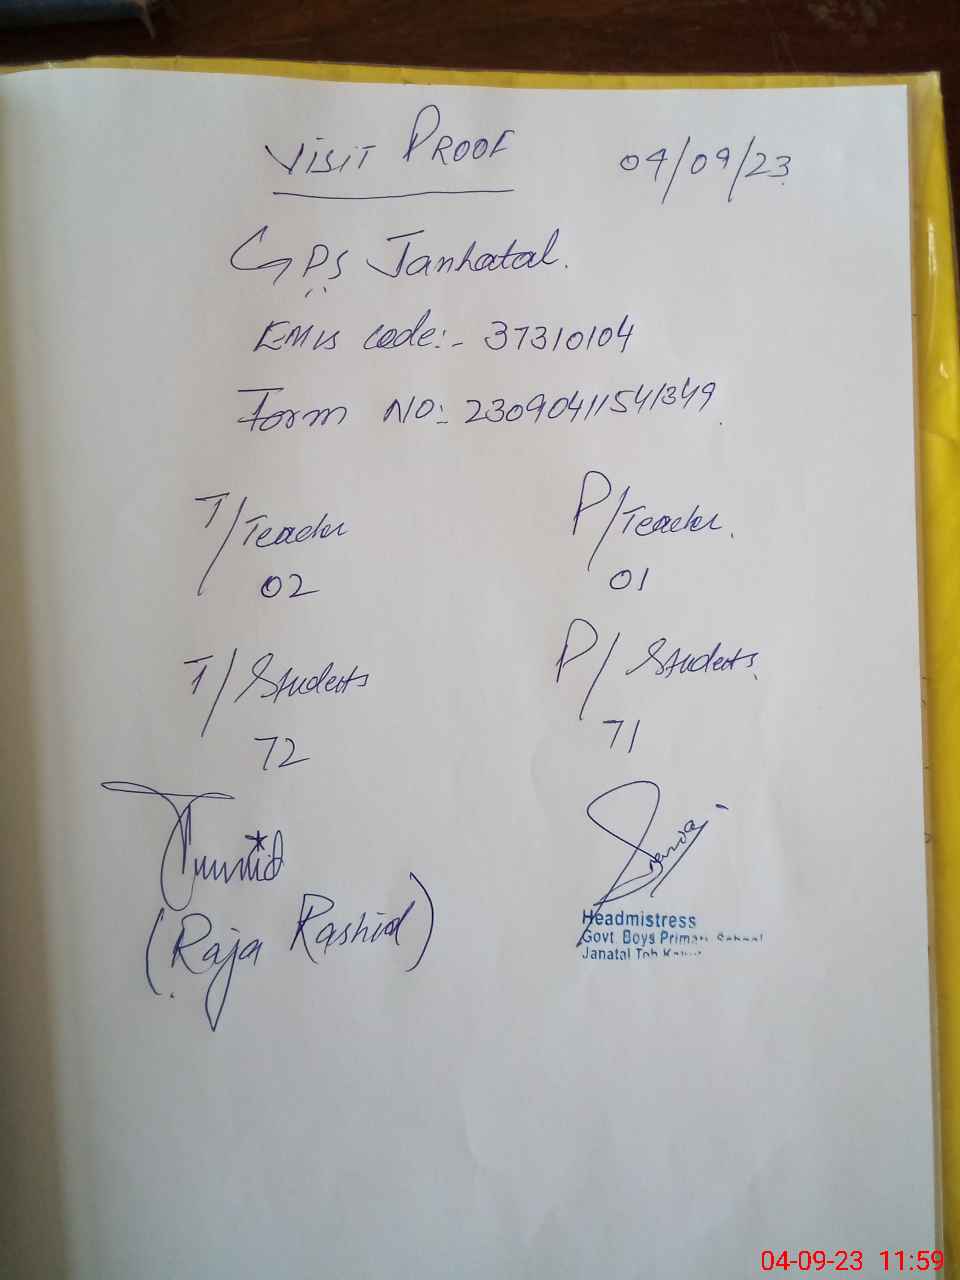 VISIT PROOF 04/09/23
GPS Janhatal.
EMIS code:- 37310104
Form NO:- 23090411541349.
T/Teacher P/Teacher.
02 01
T/Students P/Students.
72 71
(Raja Rashid)
Headmistress
Govt Boys Primary School
Janatal Teh
04-09-23 11:59